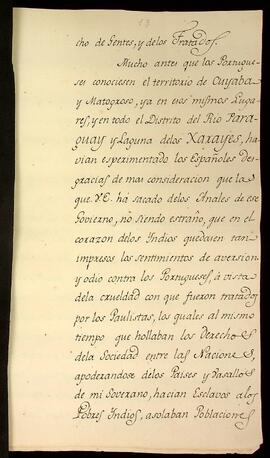 cho de Gentes, y de los Tratados.
Mucho antes que los Portugue-
ses conociesen el territorio de Cuyaba
y Matogroso, ya en esos mismos Luga-
res, y en todo el Distrito del Rio Para-
guay y Laguna delos Xarayes, ha-
vian esperimentado los Españoles des-
gracias de mas consideracion que la
que V.E. ha sacado delos Anales de ese
Govierno, no siendo estraño, que en el
corazon delos Indios quedasen tan
impresos los sentimientos de aversion,
y odio contra los Portugueses, à vista
dela crueldad con que fueron tratados
por los Paulistas, los quales al mismo
tiempo que hollaban los Derechos
dela Sociedad entre las Naciones,
apoderandose delos Paises y Vasallos
de mi Soverano, hacian Esclavos alos
Pobres Indios, asolaban Poblaciones